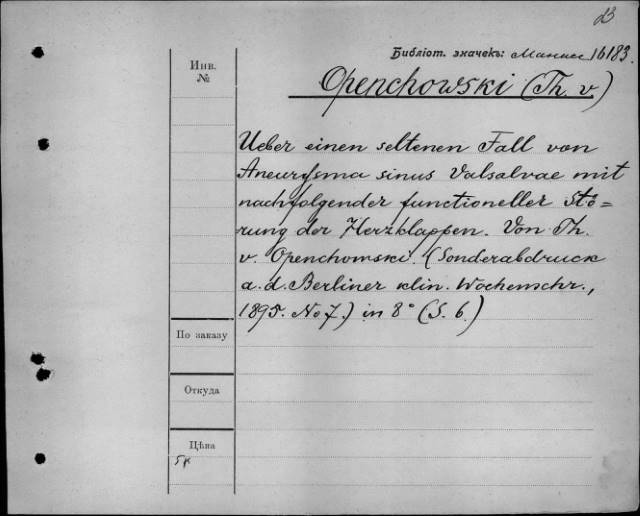 Библіот. значекъ: 16183.
Инв.
№
Openchowski (Th. v)
Ueber einen seltenen Fall von
Aneurysma sinus Valsalvae mit
nachfolgender functioneller Stö=
rung der Herzklappen. Von Th.
v. Openchowski. (Sonderabdruck
a. d. Berliner klin. Wochenschr.,
1895. No 7.) in 8° (S. 6.)
По заказу
Откуда
Цѣна